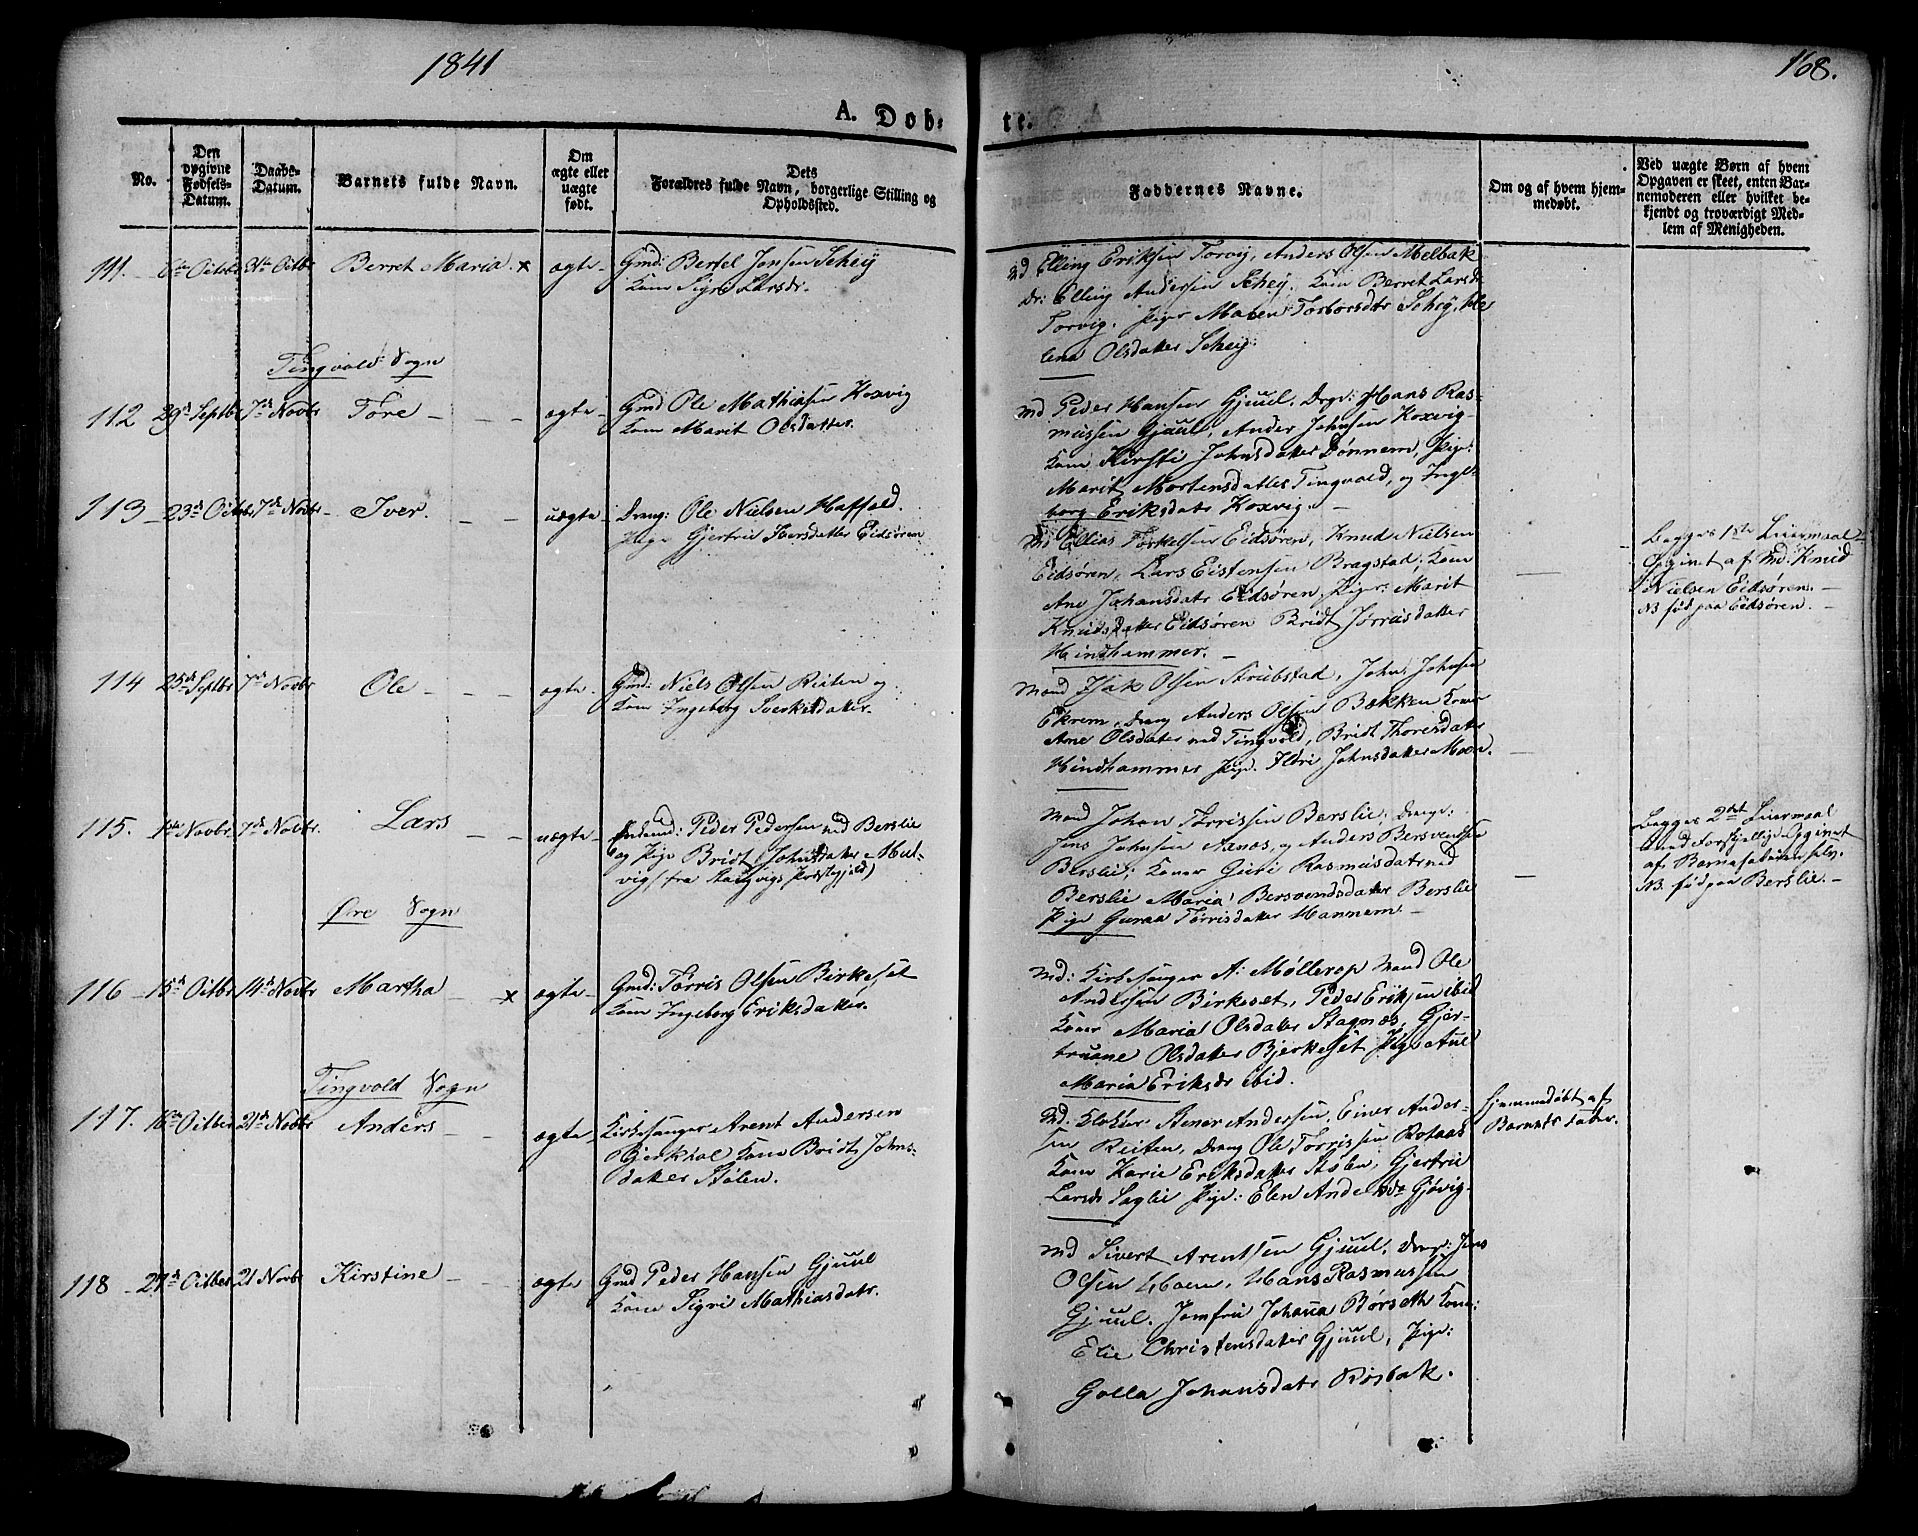 1841
168.
A. Døb-
te.
No.
Den opgivne Fødsels-Datum.
Daabs-Datum.
Barnets fulde Navn.
Om ægte eller uægte født.
Dets Forældres fulde Navn, borgerlige Stilling og Opholdssted.
Faddernes Navne.
Om og af hvem hjem-
medøbt.
Ved uægte Børn af hvem
Opgaven er skeet, enten Bar-
nemoderen eller hvilket be-
kjendt og troværdigt Med-
lem af Menigheden.
111. 6te Octbr 31te Octbr Berret Maria. x ægte - Gmd: Bertel Jonsen Schey
Kone Sigri Larsdr.
Md Elling Eriksen Torvig, Anders Olsen Melbak
Dr: Elling Andersen Schey. Kone Berret Larsdr
Torvig. Pige Maren Torborsdtr Schey, He-
lena Olsdatter Schey.
Tingvold Sogn
112 29de Septbr 7de Novbr Tore - - - ægte - Gmd Ole Mathiasen Koxvig
Kone Marit Olsdatter.
Md Peder Hansen Gjuul. Drge: Hans Ras-
mussen Gjuul, Ander Johnsen Koxvig
Kone Kirsti Johnsdatter Dønnem, Pige:
Marit Mortensdatter Tingvold, og Inge-
borg Eriksdatr Koxvig. -
113 - 23de Octbr 7de Novbr - Iver. - - uægte - Dreng: Ole Nielsen Haffald.
Pige Gjertru Iversdatter Eidsøren
Md Ellias Torkelsen Eidsøren, Knud Nielsen
Eidsøren, Lars Eistensen Bragstad; Kone
Ane Johansdatr Eidsøren, Piger: Marit
Knudsdatter Eidsøren Bridt Jørrisdatter
Hindhammer. -
Begges 1ste Leiermaal -
Opgivet af Md. Knud
Nielsen Eidsøren. -
NB fød paa Eidsøren. -
114 25de Septbr 7de Novbr Ole - - - ægte - Gmd: Niels Olsen Reiten og
Kone Ingeborg Sverkesdatter.
Mand Isak Olsen Strubstad, John Johnsen
Ekrem, Dreng Anders Olsen Bakken Kone
Ane Olsdatter ved Tingvold, Bridt Thoresdatter
Hindhammer Pige. Ildri Johnsdatter Moen.
115. 1ste Novbr. 7de Novbr. Lars - - uægte - Peder Pedersen ved Berslie
og Pige Bridt Johnsdatter Mul-
vig (fra Stangvigs Præstegjeld)
Mand Johan Tørrissen Berslie; Drenge:
Jens Johnsen Naxos, og Anders Bersvendsen
Berslie; Koner Guri Rasmusdatr ved
Berslie Maria Bersvendsdatter Berslie
Pige Guraa Tørrisdatter Hannem. -
Begges 2det Leiermaal
med forskjellige Opgivet
af Barnefaderen selv.
NB. fød paa Berslie. -
Øre Sogn
116 - 15de Octbr 14de Novbr Martha - x ægte - Gmd: Tørris Olsen Birkeset
Kone Ingeborg Eriksdatter.
Md: Kirkesanger A: Møllerop Mand Ole
Andersen Birkeset, Peder Eriksen ibid
Koner Maria Olsdatter Stagnæs, Gjer-
truane Olsdatter Bjerkeset Pige Ane
Maria Eriksdr ibid.
Tingvold Sogn
117. 16de Octbr 21de Novbr Anders - - ægte - Kirkesanger Arent Andersen
Bjerkhol Kone Bridt Johns-
datter Stølen.
Md. Klokker Stener Andersen, Einer Ander-
sen Reiten, Dreng Ole Tørrissen Rotaas
Kone Karie Eriksdatter Stølen, Gjertru
Larsdr Saglie Pige: Elen Andersdr Gjøvig.
Hjemmedøbt af
Barnets Fader.
118 - 27de Octbr 21 Novbr Kirstine - - ægte Gmd Peder Hansen Gjuul
Kone Sigri Mathiasdatr.
Md Sivert Arentsen Gjuul. Drge: Jens
Olsen Moen, Hans Rasmussen
Gjuul. Jomfru Johana Børseth Kone:
Elie Christensdatter Gjuul, Pige:
Golla Johansdatr Røsbak.